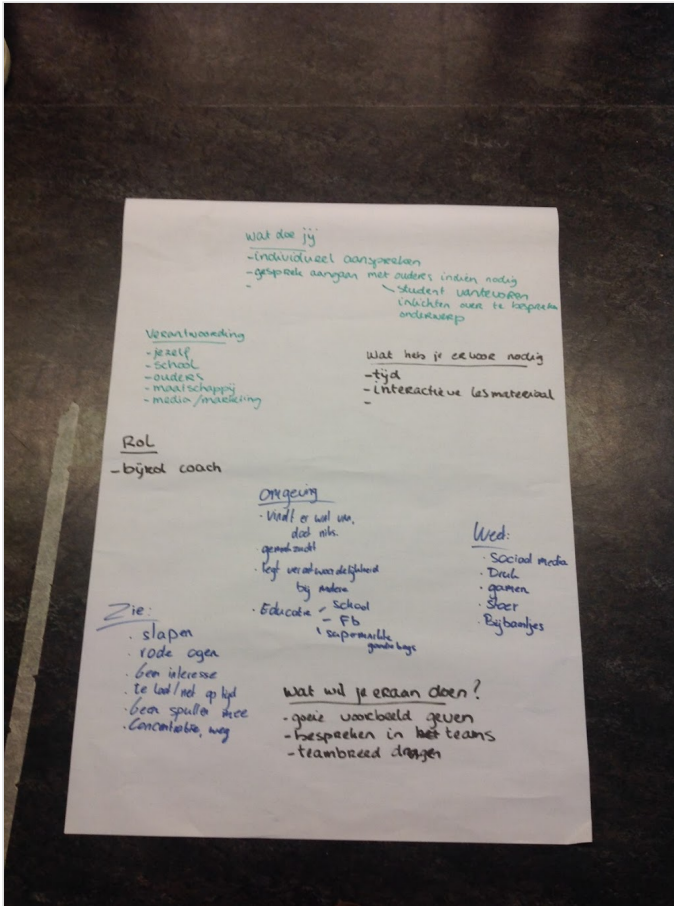 Wat doe jij
- individueel aanspreken
- gesprek aangaan met ouders indien nodig
-
student vantevoren
inlichten over te bespreken
onderwerp
Verantwoording
- jezelf
- school
- ouders
- maatschappij
- media/marketing
Wat heb je ervoor nodig
- tijd
- interactieve lesmateriaal
-
Rol
- bijrol coach
Omgeving
· Vindt er wel van,
doet niks
· gemakzucht
· legt verantwoordelijkheid
bij andere
· Educatie - School
- Fb
- supermarkt
Weet:
· Sociaal media
· Druk
· gamen
· Stoer
· Bijbaantjes
Zie:
· slapen
· rode ogen
· Geen interesse
· te laat/net op tijd
· Geen spullen mee
· Concentratie, weg
Wat wil je eraan doen?
- goeie voorbeeld geven
- bespreken in het teams
- teambreed dragen